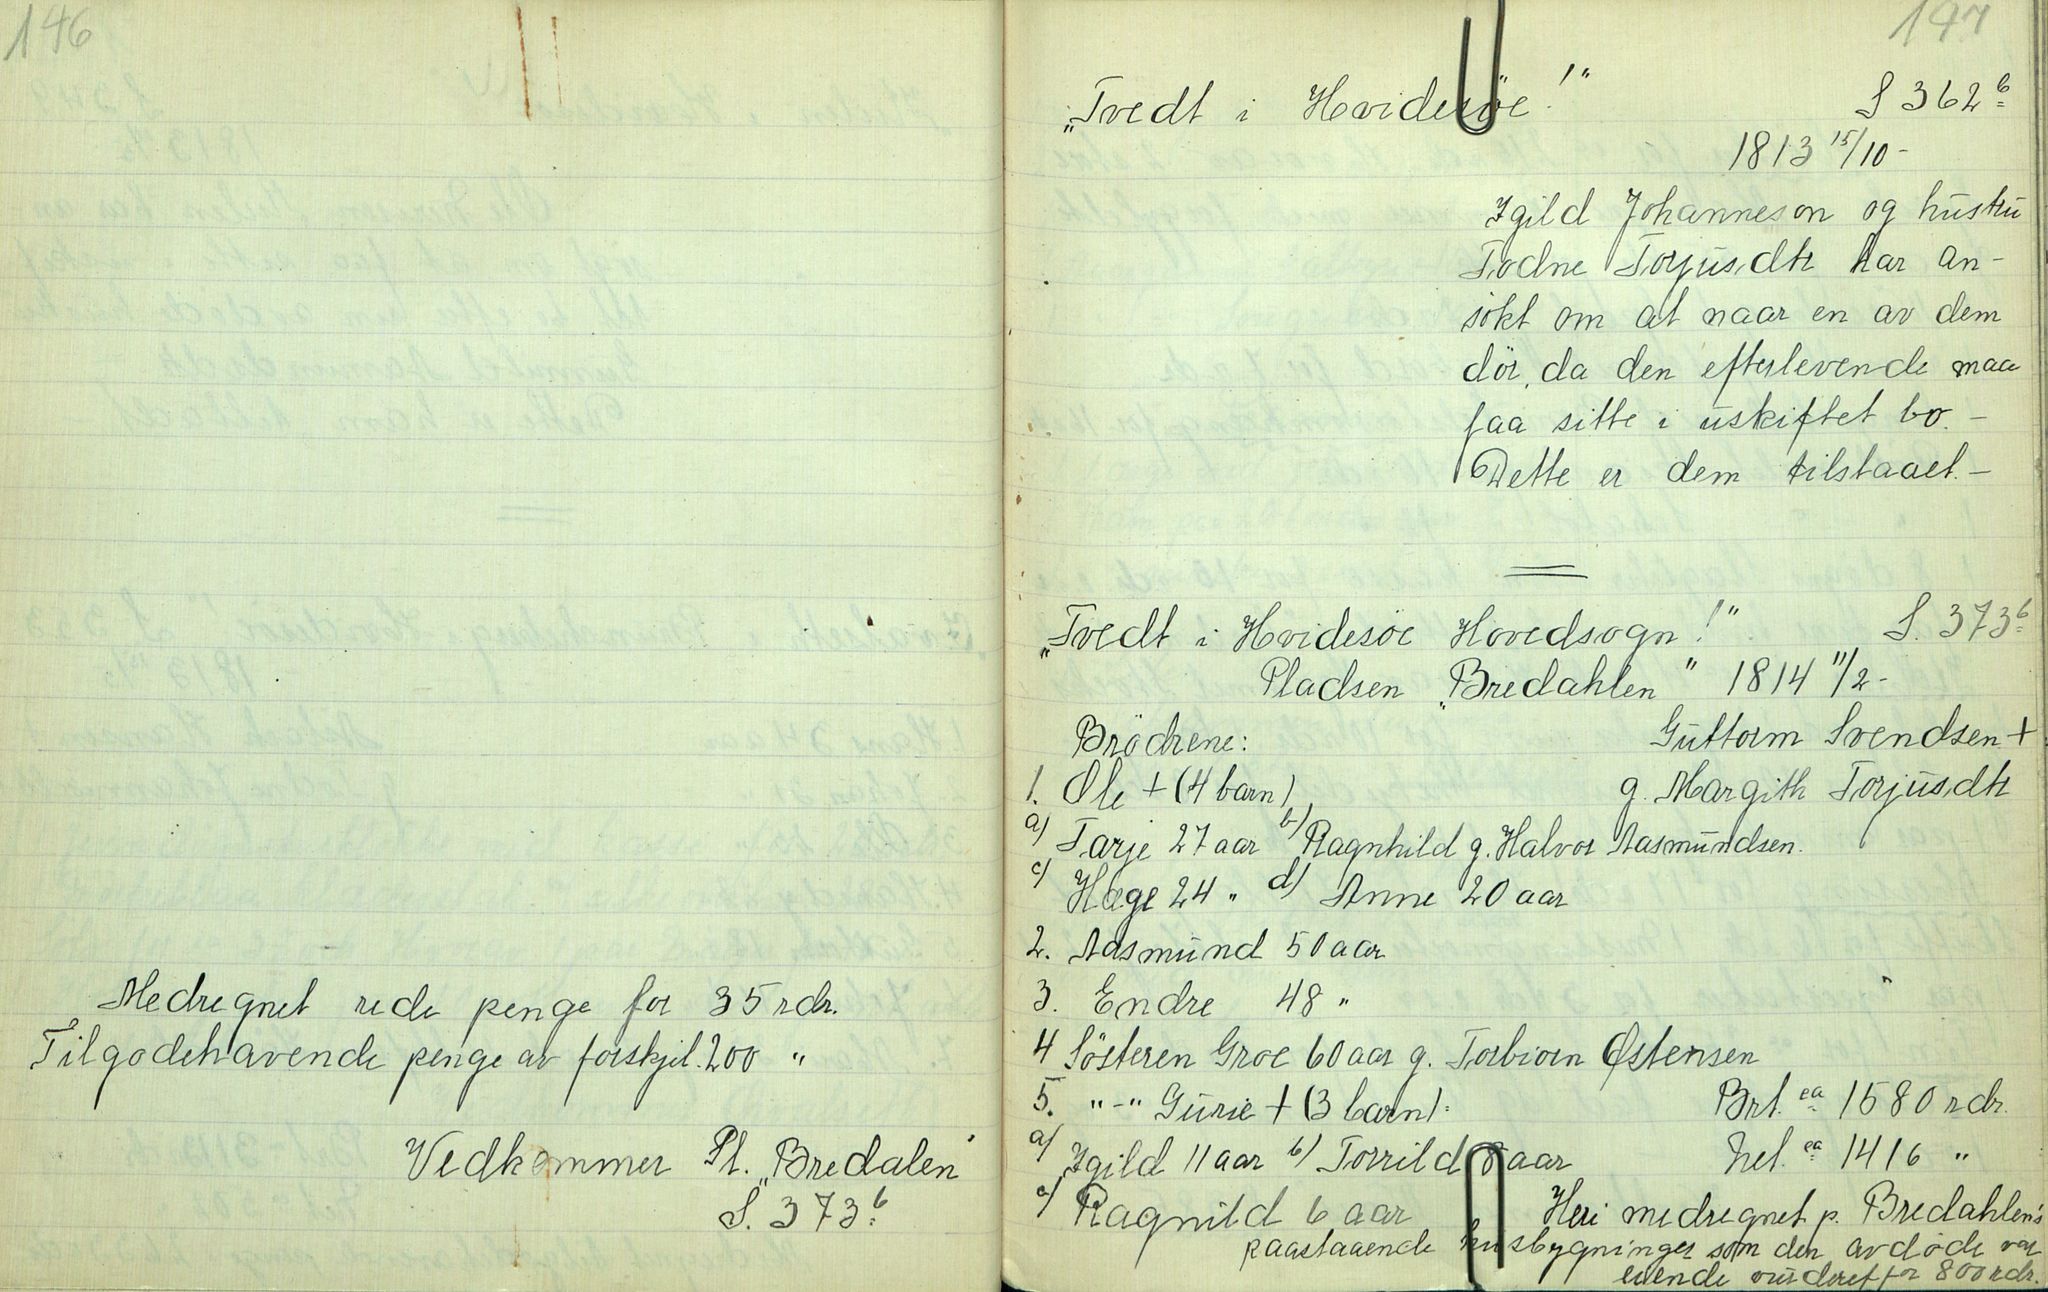 146
Medregnet rede penge for 35 rdr.
Tilgodehavende penge av forskjel. 200 "
Vedkommer Pl. „Bredalen"
S. 373 b
147
„Tvedt i Hvidesöe!" S 362 b
1813 15/10 -
Igild Johanneson og hustru
Todne Torjusdtr har an-
sökt om at naar en av dem
dör, da den efterlevende maa
faa sitte i uskiftet bo. -
Dette er dem tilstaaet. -
„Tvedt i Hvidesöe Hovedsogn!" S. 373 b
Pladsen „Bredahlen" 1814 11/2 -
Brödrene: Guttorm Svendsen +
1. Ole + (4 barn) g. Margith Torjusdtr
a) Tarje 27 aar b) Ragnhild g. Halvor Aasmundsen.
c) Hæge 24 " d) Anne 20 aar
2. Aasmund 50 aar
3. Endre 48 "
4 Sösteren Groe 60 aar g. Torbiorn Østensen
5. "-" Gurie + (3 barn): Brt. ca 1580 rdr.
a) Igild 11 aar b) Torrild 8 aar Net. ca 1416 "
c) Ragnild 6 aar Heri medregnet p. Bredahlen's
paastaaende husbygninger som den avdöde var
eiende vurderet for 800 rdr.